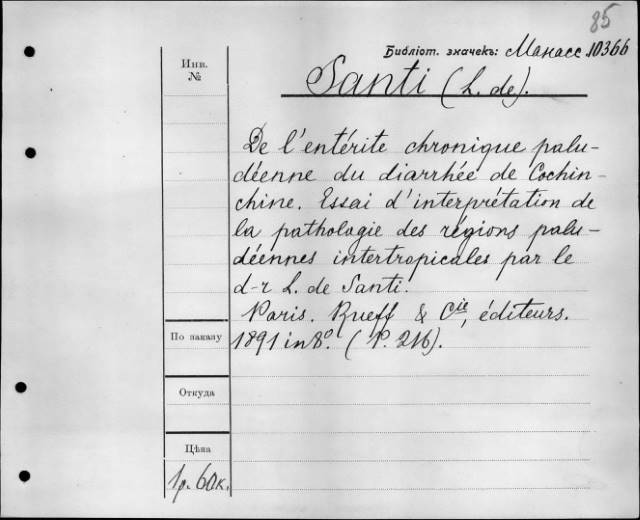 85
Библіот. значекъ: Манасс 10366
Инв.
№
Santi (L. de).
De l'entérite chronique palu-
déenne du diarrhée de Cochin-
chine. Essai d'interprétation de
la pathologie des régions palu-
déennes intertropicales par le
d-r L. de Santi.
Paris. Rueff & Cie, éditeurs.
По заказу
1891 in 8º. (P. 216).
Откуда
Цѣна
1р. 60к.